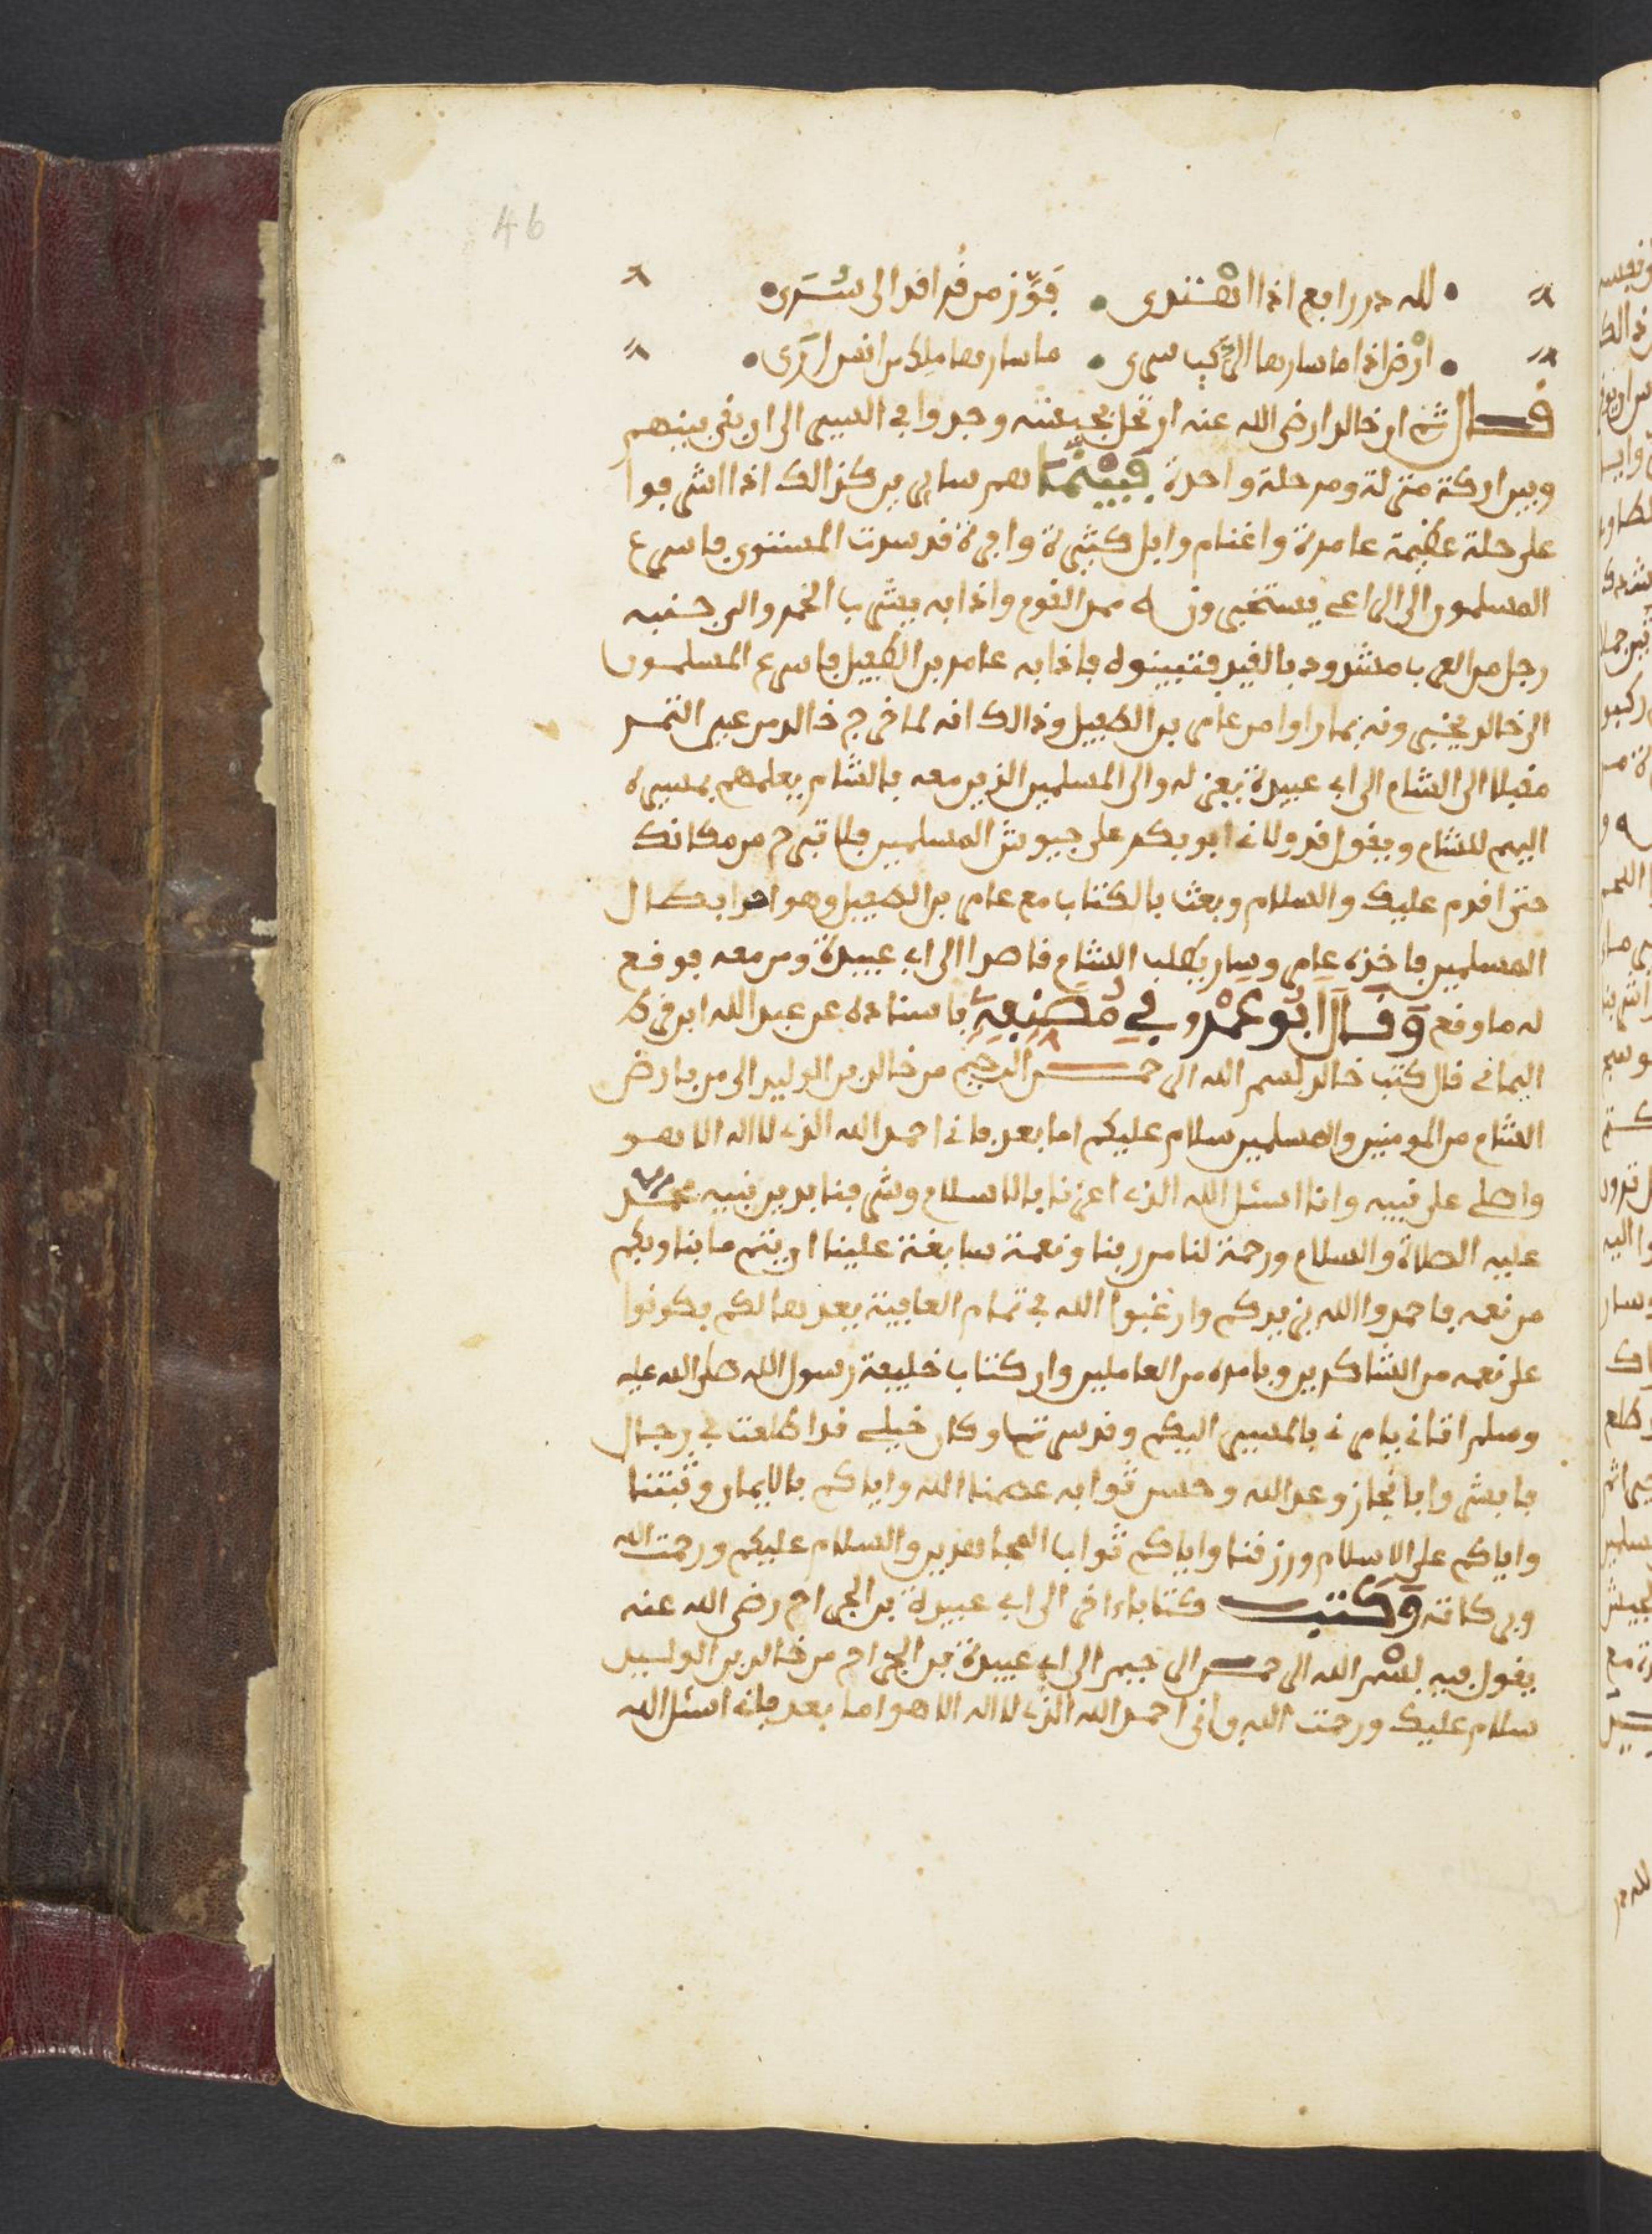 46
لله در رابع اذا اهتدى • فوّز من قراقر الى سُرَى
ارض اذا ما سارها الركب سرى • ما سارها ملك من انس ارى
قال ثم ان خالدا رضي الله عنه ارتحل بجيشه وجدوا في السير الى ان بقي بينهم
وبين اركة منزلة ومرحلة واحدة فبينما هم سايرين كذالك اذا اشرفوا
على حلة عظيمة عامرة واغنام وابل كثيرة وافرة قد سدت المستوى فاسرع
المسلمون الى الراعي يستخبرونه ممن القوم واذا به يشرب الخمر والى جنبه
رجل من العرب مشدود بالقيد فتبينوه فاذا به عامر بن الطفيل فاسرع المسلمون
الى خالد يخبرونه بما راوا من عامر بن الطفيل وذالك انه لما خرج خالد من عين التمر
مقبلا الى الشام الى ابي عبيدة بعزله والى المسلمين الذين معه بالشام يعلمهم بمسيره
اليهم للشام ويقول قد ولاني ابو بكر على جيوش المسلمين فلا تبرح من مكانك
حتى اقدم عليك والسلام وبعث بالكتاب مع عامر بن الطفيل وهو احد ابطال
المسلمين فاخذه عامر وسار يطلب الشام قاصدا الى ابي عبيدة ومن معه فوقع
له ما وقع وَقَالَ ابُو عَمْرو فِي مُصَنِعِهِ باسناده عن عبد الله ابن قرط
اليماني قال كتب خالد بسم الله الرحمن الرحيم من خالد بن الوليد الى من بارض
الشام من المومنين والمسلمين سلام عليكم اما بعد فاني احمد الله الذي لا اله الا هو
واصلي على نبيه وانا اسئل الله الذي اعزنا بالاسلام وشرفنا بدين نبيه محمد
عليه الصلاة والسلام ورحمة لنا من ربنا ونعمة سابغة علينا ان يتم ما بنا وبكم
من نعمه فاحمدوا الله يزيدكم وارغبوا الله في تمام العافية يعدها لكم فكونوا
على نعمه من الشاكرين وبامره من العاملين وان كتاب خليفة رسول الله صلى الله عليه
وسلم اتاني يامرني بالمسير اليكم وقد سرت وكان خيلي قد اطلعت في رجال
فابشروا بانجاز وعد الله وحسن ثوابه عصمنا الله واياكم بالايمان وثبتنا
واياكم على الاسلام ورزقنا واياكم ثواب المجاهدين والسلام عليكم ورحمت الله
وبركاته وَكَتَبَ كتاباء اخر الى ابي عبيدة بن الجراح رضي الله عنه
يقول فيه بسم الله الرحمن الرحيم الى ابي عبيدة بن الجراح من خالد بن الوليد
سلام عليك ورحمت الله واني احمد الله الذي لا اله الا هو اما بعد فاني اسئل الله